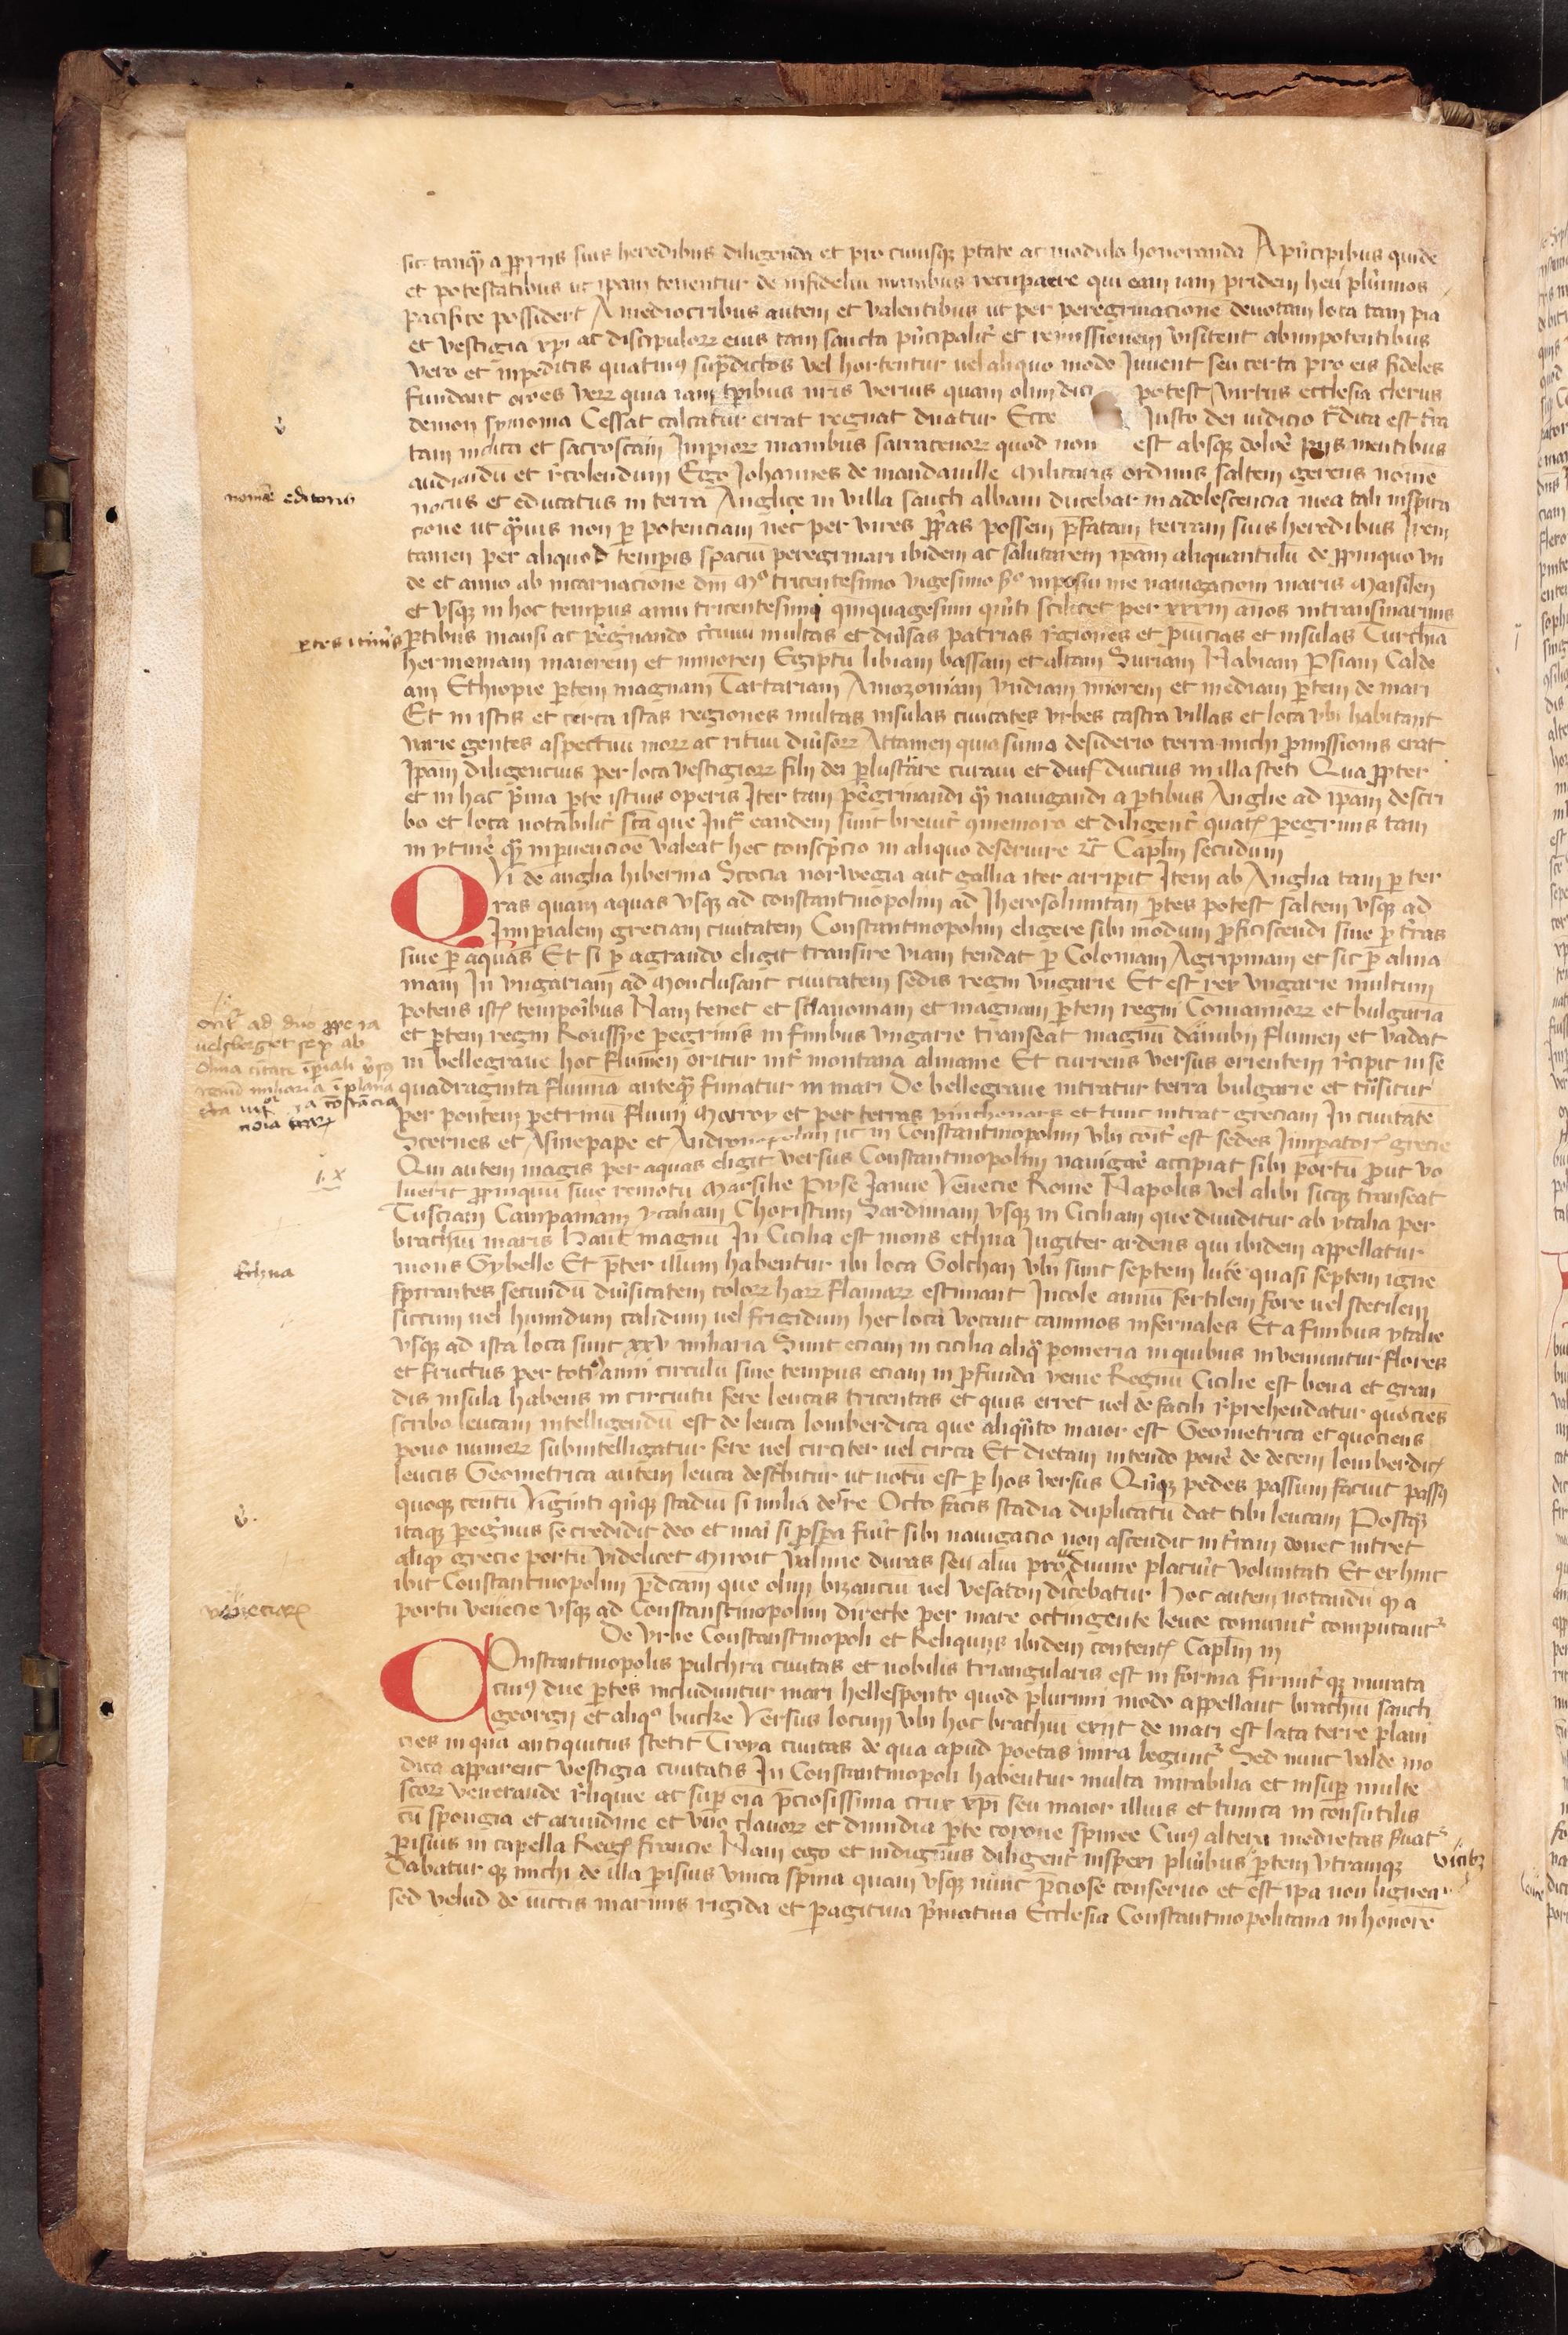 sic tanq̄ a p̱prijs suis heredibus diligenda et pro cuiusq; p̱tate ac modulo honoranda A pͥncipibus quidē
et potestatibus ut ip̄am tenentur de infideliū manibus recupare qui eam iam pridem heu plͥimos
pacifice possident A mediocribus autem et valentibus ut per peregrinacione deuotam loca tam pia
et vestigia xp̄i ac discipuloꝝ eius tam sancta pͥncipalit̾ et remissionem visitent ab inpotentibus
vero et inpeditis quatinꝰ sup̄dictos vel hortentur uel aliquo modo Iuuent seu certa pro eis fideles
fundant or̄oes veꝝ quia iam tp̄ibus nr̄is verius quam olim dici potest virtus ecclesia clerus
demon symonia Cessat calcatur errat regnat dn̄atur Ecce Iusto dei iudicio t̾dita est tr̄a
tam inclita et sacroscā Impioꝝ manibus sarracenoꝝ quod non est absq; dolor̄e pijs mentibus
audiendū et r̄colendum Ego Johannes de mandauille militaris ordinis saltem gerens nomē
natus et educatus in terra Anglie in villa sancti albani ducebar in adolescencia mea tali inspira
cione ut q̄uis non p̱ potenciam nec per vires p̱prias possem p̄fatam terram suis heredibus Irem
tamen per aliquod temp̱is spaciū peregrinari ibidem ac salutarem ip̄am aliquantulū de p̱pinquo vn
de et anno ab incarnacione dn̄i Mͦ tricentesimo vigesimo inposui me nauigacioni maris Marsilen
et vsq; in hoc tempus anni tricentesimi quinquagesimi quīti scilicet per xxxiii anos in transmarinis
p̱tibus mansi ac pēgrinando circuiui multas et diu̾sas patrias r̄giones et p̱uincias et insulas Turchiā
hermoniam maiorem et minorem Egiptū libiam bassam et altam Suriam Nabiam P̱siam Calde
am Ethiopie p̱tem magnam Tartariam Amozoniam yndiam mīorem et mediam p̱tem de mari
Et in istis et circa istas regiones multas insulas ciuitates vrbes castra villas et loca vbi habitant
varie gentes aspectuū moꝝ ac rituū diu̾soꝝ Attamen quia sumo desiderio terra michi p̱missionis erat
Ip̄am diligencius per loca vestigioꝝ filii dei p̱lustrare curaui et diucius in illa steti Qua p̱pter
et in hac p̄ma p̱te istius operis Iter tam pēgrinandi q̄ nauigandi a p̱tibus Anglie ad ip̄am descri
bo et loca notabilit̾ sc̄a que Int̾ eandem sunt breuit̾ ꝯmemoro et diligent̾ quatꝭ pegrinis tam
in ytiner̄ q̄ in p̱uencioe valeat hec conscp̄cio in aliquo deseruire ⁊c̄ Caplm̄ secūdum
QVi de anglia hibernia Scocia norwegia aut gallia iter arripit Item ab Anglia tam p̱ ter
ras quam aquas vsq; ad constantinopolim ad Iherosolimitan̄ p̱tes potest saltem vsq; ad
Imp̱ialem greciam ciuitatem Constantinopolim eligere sibi modum p̱ficiscendi siue p̱ tr̄as
siue p̱ aquas Et si p̱agrando eligit transire viam tendat p̱ Coloniam Agripinam et sic p̱ alma
niam In vngariam ad Monclusant ciuitatem sedis regni vngarie Et est rex vngarie multum
potens istꝭ tempōibus Nam tenet et sclauoniam et magnam p̱tem regni Comanioꝝ et bulgaria
et p̱tem regni Roussye pegrin̾s in finibus vngarie transeat magnū danubij flumen et vadat
in bellegraue hoc flumen oritur int̾ montana almanie Et currens versus orientem r̄cipit in se
quadraginta flumina anteq̄ finiatur in mari De bellegraue intratur terra bulgarie et tn̄situr
per pontem petrinū fluuij Marroy et per terras pinchenars et tunc intrat greciam In ciuitatē
Scernes et Asinepape et in Constantinopolim vbi cōit̾ est sedes Imp̱atorꝭ grecie
Qui autem magis per aquas eligit versus Constantinopolim nauigar̄ accipiat sibi portū p̱ut vo
luerit p̱pinquū siue remotū Marsilie Pyse Ianue Venecie Rome Napolis vel alibi sicq; transeat
Tusciam Campaniam ytaliam Choristum Sardiniam vsq; in Ciciliam que diuiditur ab ytalia per
brachiū maris haut magnū In Cicilia est mons ethna Iugiter ardens qui ibidem appellatur
mons Gybelle Et p̄ter illum habentur ibi loca Golchan vbi sunt septem luce quasi septem igne
spirantes secundū diu̾sitatem coloꝝ haꝝ flamaꝝ estimant Incole annū fertilem fore uel sterilem
siccum uel humidum calidum uel frigidum hec loca vocant caminos infernales Et a finibus ytalie
vsq; ad ista loca sunt xxv miliaria Sunt eciam in cicilia aliq̄ pomeria in quibus inveniuntur flores
et fructus per totū anni circulū siue tempus eciam in p̱funda yeme Regnū Cicilie est bona et gran
dis insula habens in circuitu fere leucas tricentas et quis erret uel de facili r̄prehendatur quociēs
scribo leucam intelligendū est de leuca lomberdica que aliq̄nto maior est Geometrica et quociens
pono numeꝝ subintelligatur fere uel circiter uel circa Et dietam intendo poner̄ de decem lomberdicꝭ
leucis Geometrica autem leuca describitur ut notū est p̱ hos versus Quīq; pedes passum faciūt passꝰ
quoq; centū viginti quīq; stadiū si milia des fere Octo facis stadia duplicatū dat tibi leucam Postq̄
itaq; pegrin̾s se credidit deo et mari si p̱sp̱a fuit sibi nauigacio non ascendit in tr̄am donec intret
aliq̄ grecie portū videlicet Miroit valone duras seu aliū prout diuine placūit voluntati Et ex hinc
ibit Constantinopolim p̄dc̄am que olim bizanciū uel vesaton dicebatur Hoc autem notandū qꝫ a
portu venecie vsq; ad Constanstinopolim directe per mare octingente leuce comunit̾ computant̾
De vrbe Constanstinopoli et Reliquijs ibidem contentꝭ Caplm̄ iii
COnstantinopolis pulchra ciuitas et nobilis triangularis est in forma firmit̾q; murata
cuiꝰ due p̱tes includuntur mari hellesponto quod plurimi modo appellant brachiū sancti
georgij et aliqͦ bucke Versus locum vbi hoc brachiū exijt de mari est lata terre plani
cies in qua antiquitus stetit Troya ciuitas de qua apud poetas mira legunt̾ Sed nunc valde mo
dica apparent vestigia ciuitatis In Constantinopoli habentur multa mirabilia et insup̱ multe
sc̄oꝝ venerande r̄liquie ac sup̱ oīa p̄ciosissima crux xp̄i seu maior illius et tunica inconsutilis
cū spongia et arundine et vno clauoꝝ et dimidia p̱te corone spinee Cuiꝰ altera medietas s̾uat̾
p̱isius in capella Regꝭ francie Nam ego et indignus diligent̾ inspexi plūibus p̱tem vtramq; vicibꝫ
Dabatur q; michi de illa p̱isius vnica spina quam vsq; nunc p̄ciose conseruo et est ip̄a non lignea
sed velud de iuncis marinis rigida et pūgitiua p̄matiua Ecclesia Constantinopolitana in honorē
nomē editoris
p̱tes itin̾is
Ethna